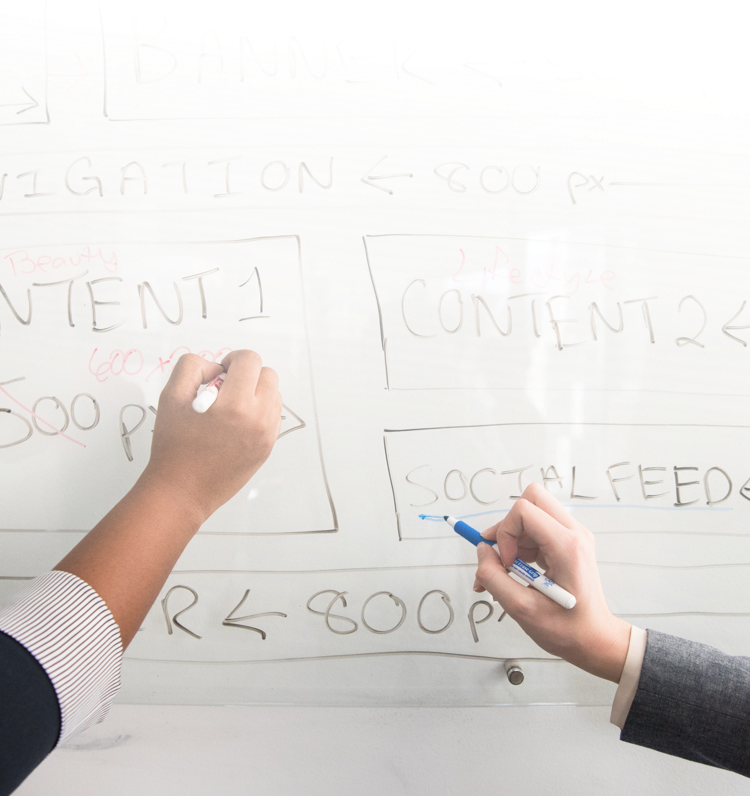 BANNER
VIGATION ← 800 px
Beauty
NTENT 1
600 x
500 px
Lifestyle
CONTENT 2 ←
SOCIAL FEED ←
R ← 800 px